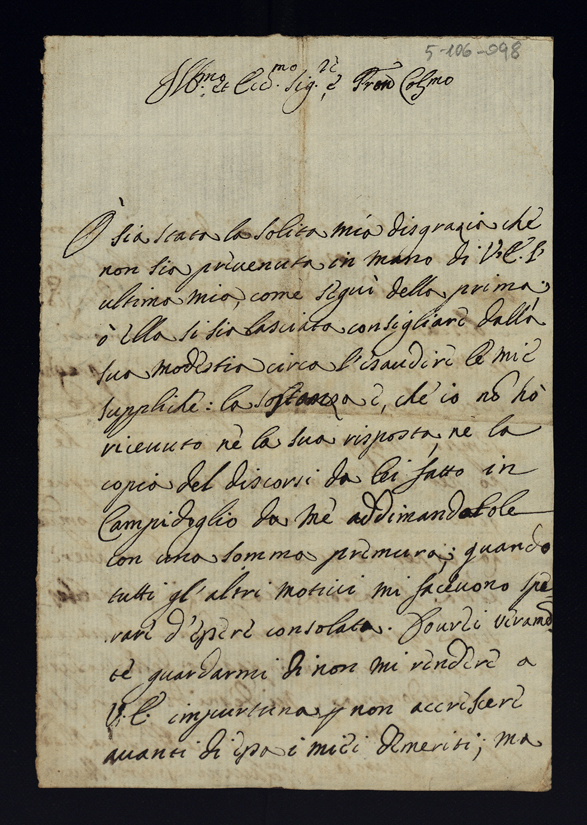 5-106-098
Ill.mo et Ecc.mo Sig.re e Pron Colmo
O' sia stata la solita mia disgrazia che
non sia prevenuta in mano di V. E. l'
ultima mia, come seguì della prima;
ò Ella si sia lasciata consigliare dalla
sua modestia circa l'esaudire le mie
suppliche: la sostanza è, che io nō hò
ricevuto nè la sua risposta, ne la
copia del discorsi da lei fatto in
Campidoglio da mè addimandatole
con una somma premura; quando
tutti gl'altri motivi mi facevono spe-
rare d'essere consolata. Dourei veramē
te guardarmi di non mi rendere a
V. E. importuna p non accrescere
avanti di essa i miei demeriti; ma